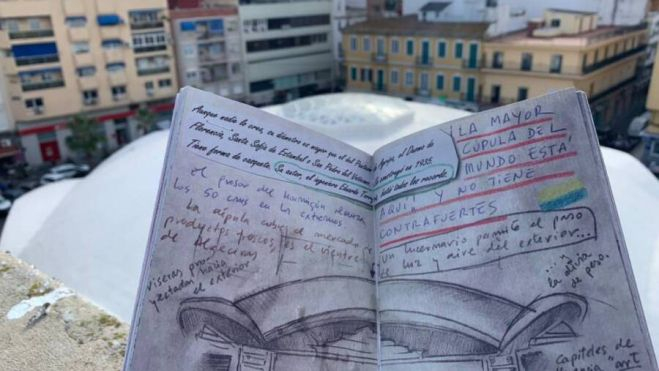 Aunque nadie lo crea, su diámetro es mayor que el del Panteón
Florencia, Santa Sofía de Estambul o San Pedro del Vaticano
Tiene forma de casquete. Su autor, el ingeniero Eduardo Torroja
el grosor del hormigón
los 50 cms en los extremos
La cúpula cubre el mercado
productos frescos, es el vientre
de Algeciras
viseras pro-
yectadas hacia
el exterior
el Duomo de
construyó en 1935.
batió todos los records.
¡LA MAYOR
CÚPULA DEL
MUNDO ESTÁ
AQUÍ Y NO TIENE
CONTRAFUERTES
un lucernario permite el paso
de luz y aire del exterior...
...y
la
de peso.
capiteles de
"art